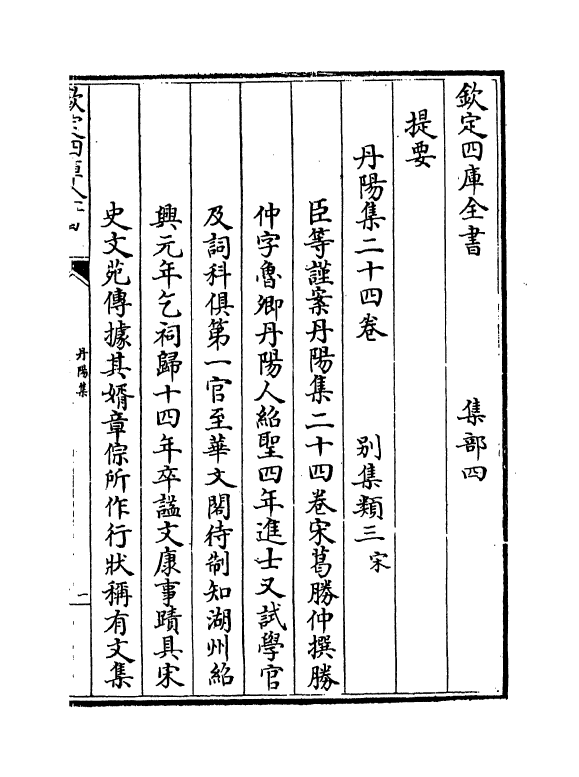 欽定四庫全書　集部四
提要
丹陽集二十四卷　別集類三宋
臣等謹案丹陽集二十四卷宋葛勝仲撰勝
仲字魯卿丹陽人紹聖四年進士又試學官
及詞科俱第一官至華文閣待制知湖州紹
興元年乞祠歸十四年卒諡文康事蹟具宋
史文苑傳據其婿章倧所作行狀稱有文集
丹陽集